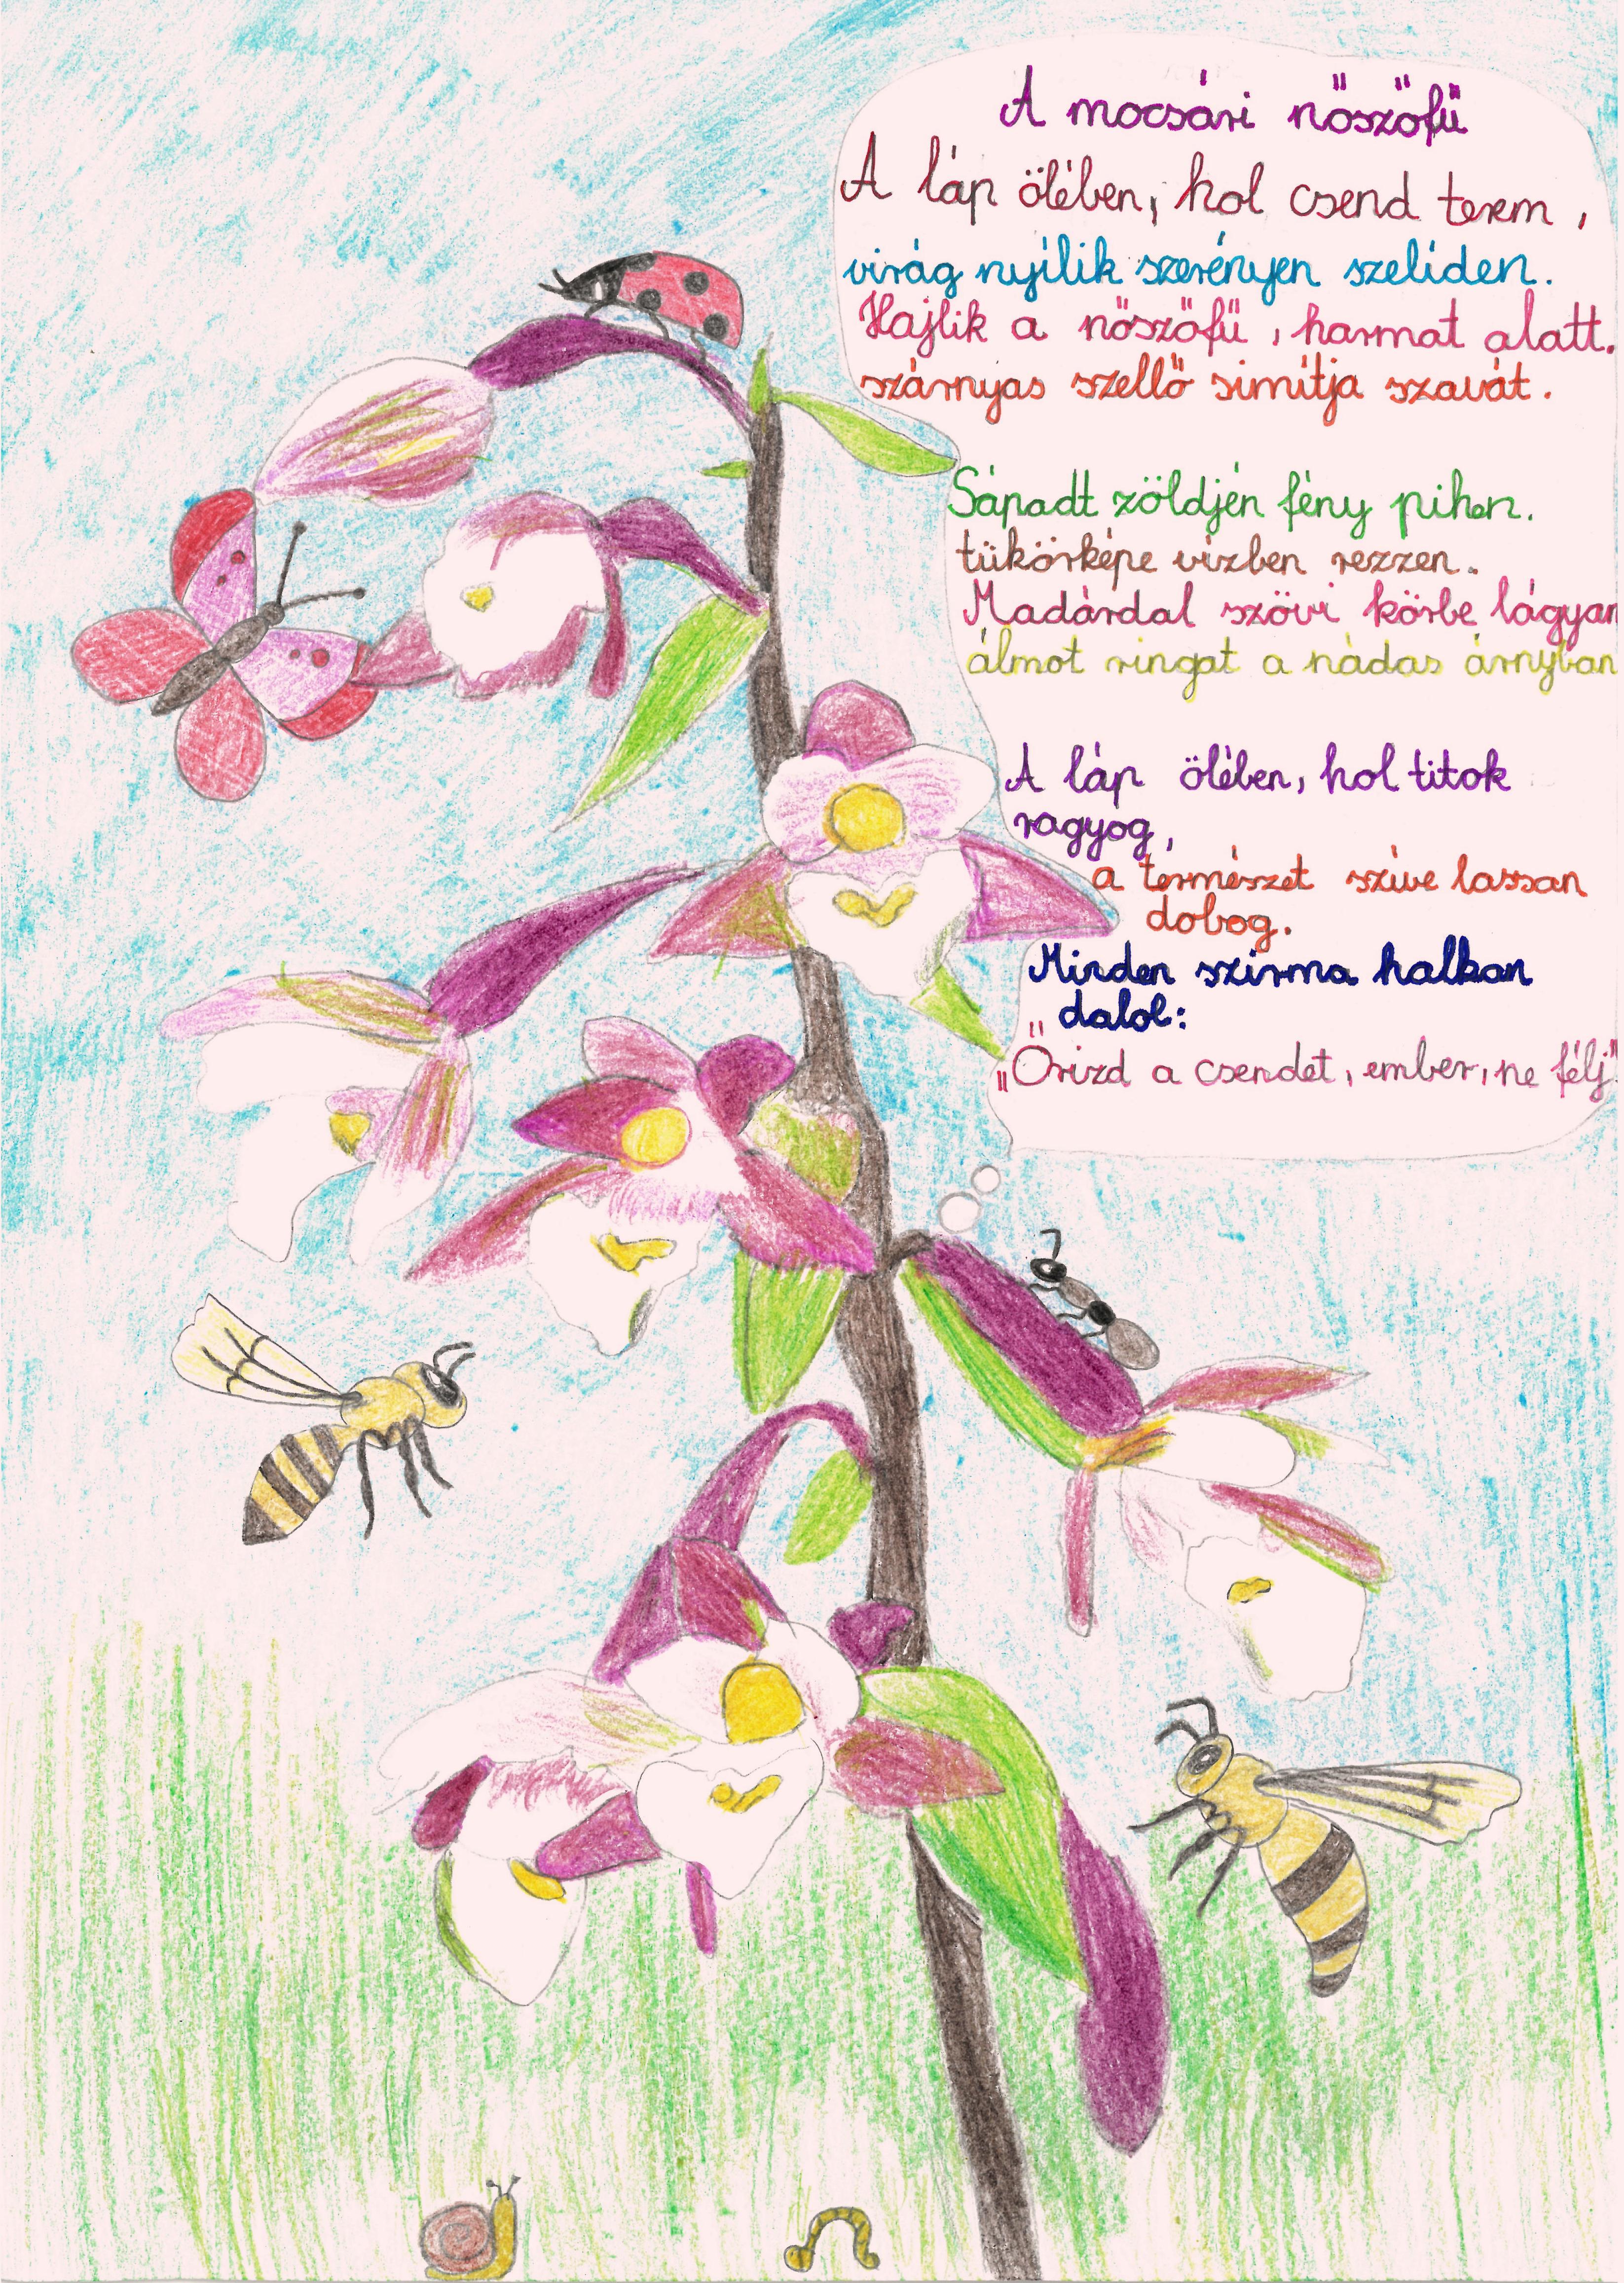 A mocsári nőszőfű
A láp ölében, hol csend terem,
virág nyílik szerényen szelíden.
Hajlik a nőszőfű, harmat alatt.
szárnyas szellő simítja szavát.
Sápadt zöldjén fény pihen.
tükörképe vízben rezzen.
Madárdal szövi körbe lágyan
álmot ringat a nádas árnyban
A láp ölében, hol titok
ragyog,
a természet szíve lassan
dobog.
Minden szirma halkan
dalol:
"Őrizd a csendet, ember, ne félj"